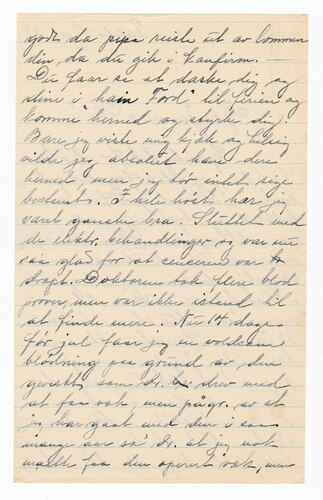 godt da pipa reiste ut av lommen
din, da du gik i konfirm. —
Du faar se at daske dig, og
stine i "hain Ford" til ferien og
komme herned og styrke dig.
Bare jeg viste mig kjæk og helsig
vilde jeg absolut have dere
herned, men jeg tør intet sige
bestemt. I hele høst har jeg
været ganske bra. Sluttet med
de elektr. behandlinger og var nu
saa glad for at canceren var
dræpt. Doktoren tok flere blod
prøver, men var ikke istand til
at finde mere. Nu 14 dage
før jul faar jeg en voldsom
blødning paa grund av den
gevekst som dr. drev med
at faa væk, men pågr. av at
jeg har gaat med den i saa
mange aar sa' dr. at jeg nok
maatte faa den operert væk, men